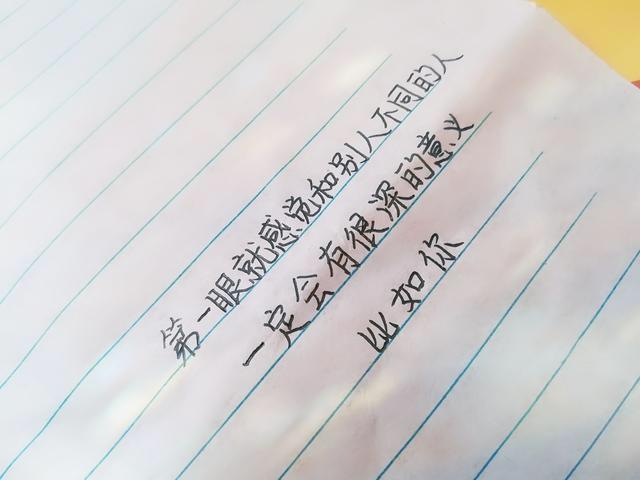 第一眼就感觉和别人不同的人
一定会有很深的意义
比如你